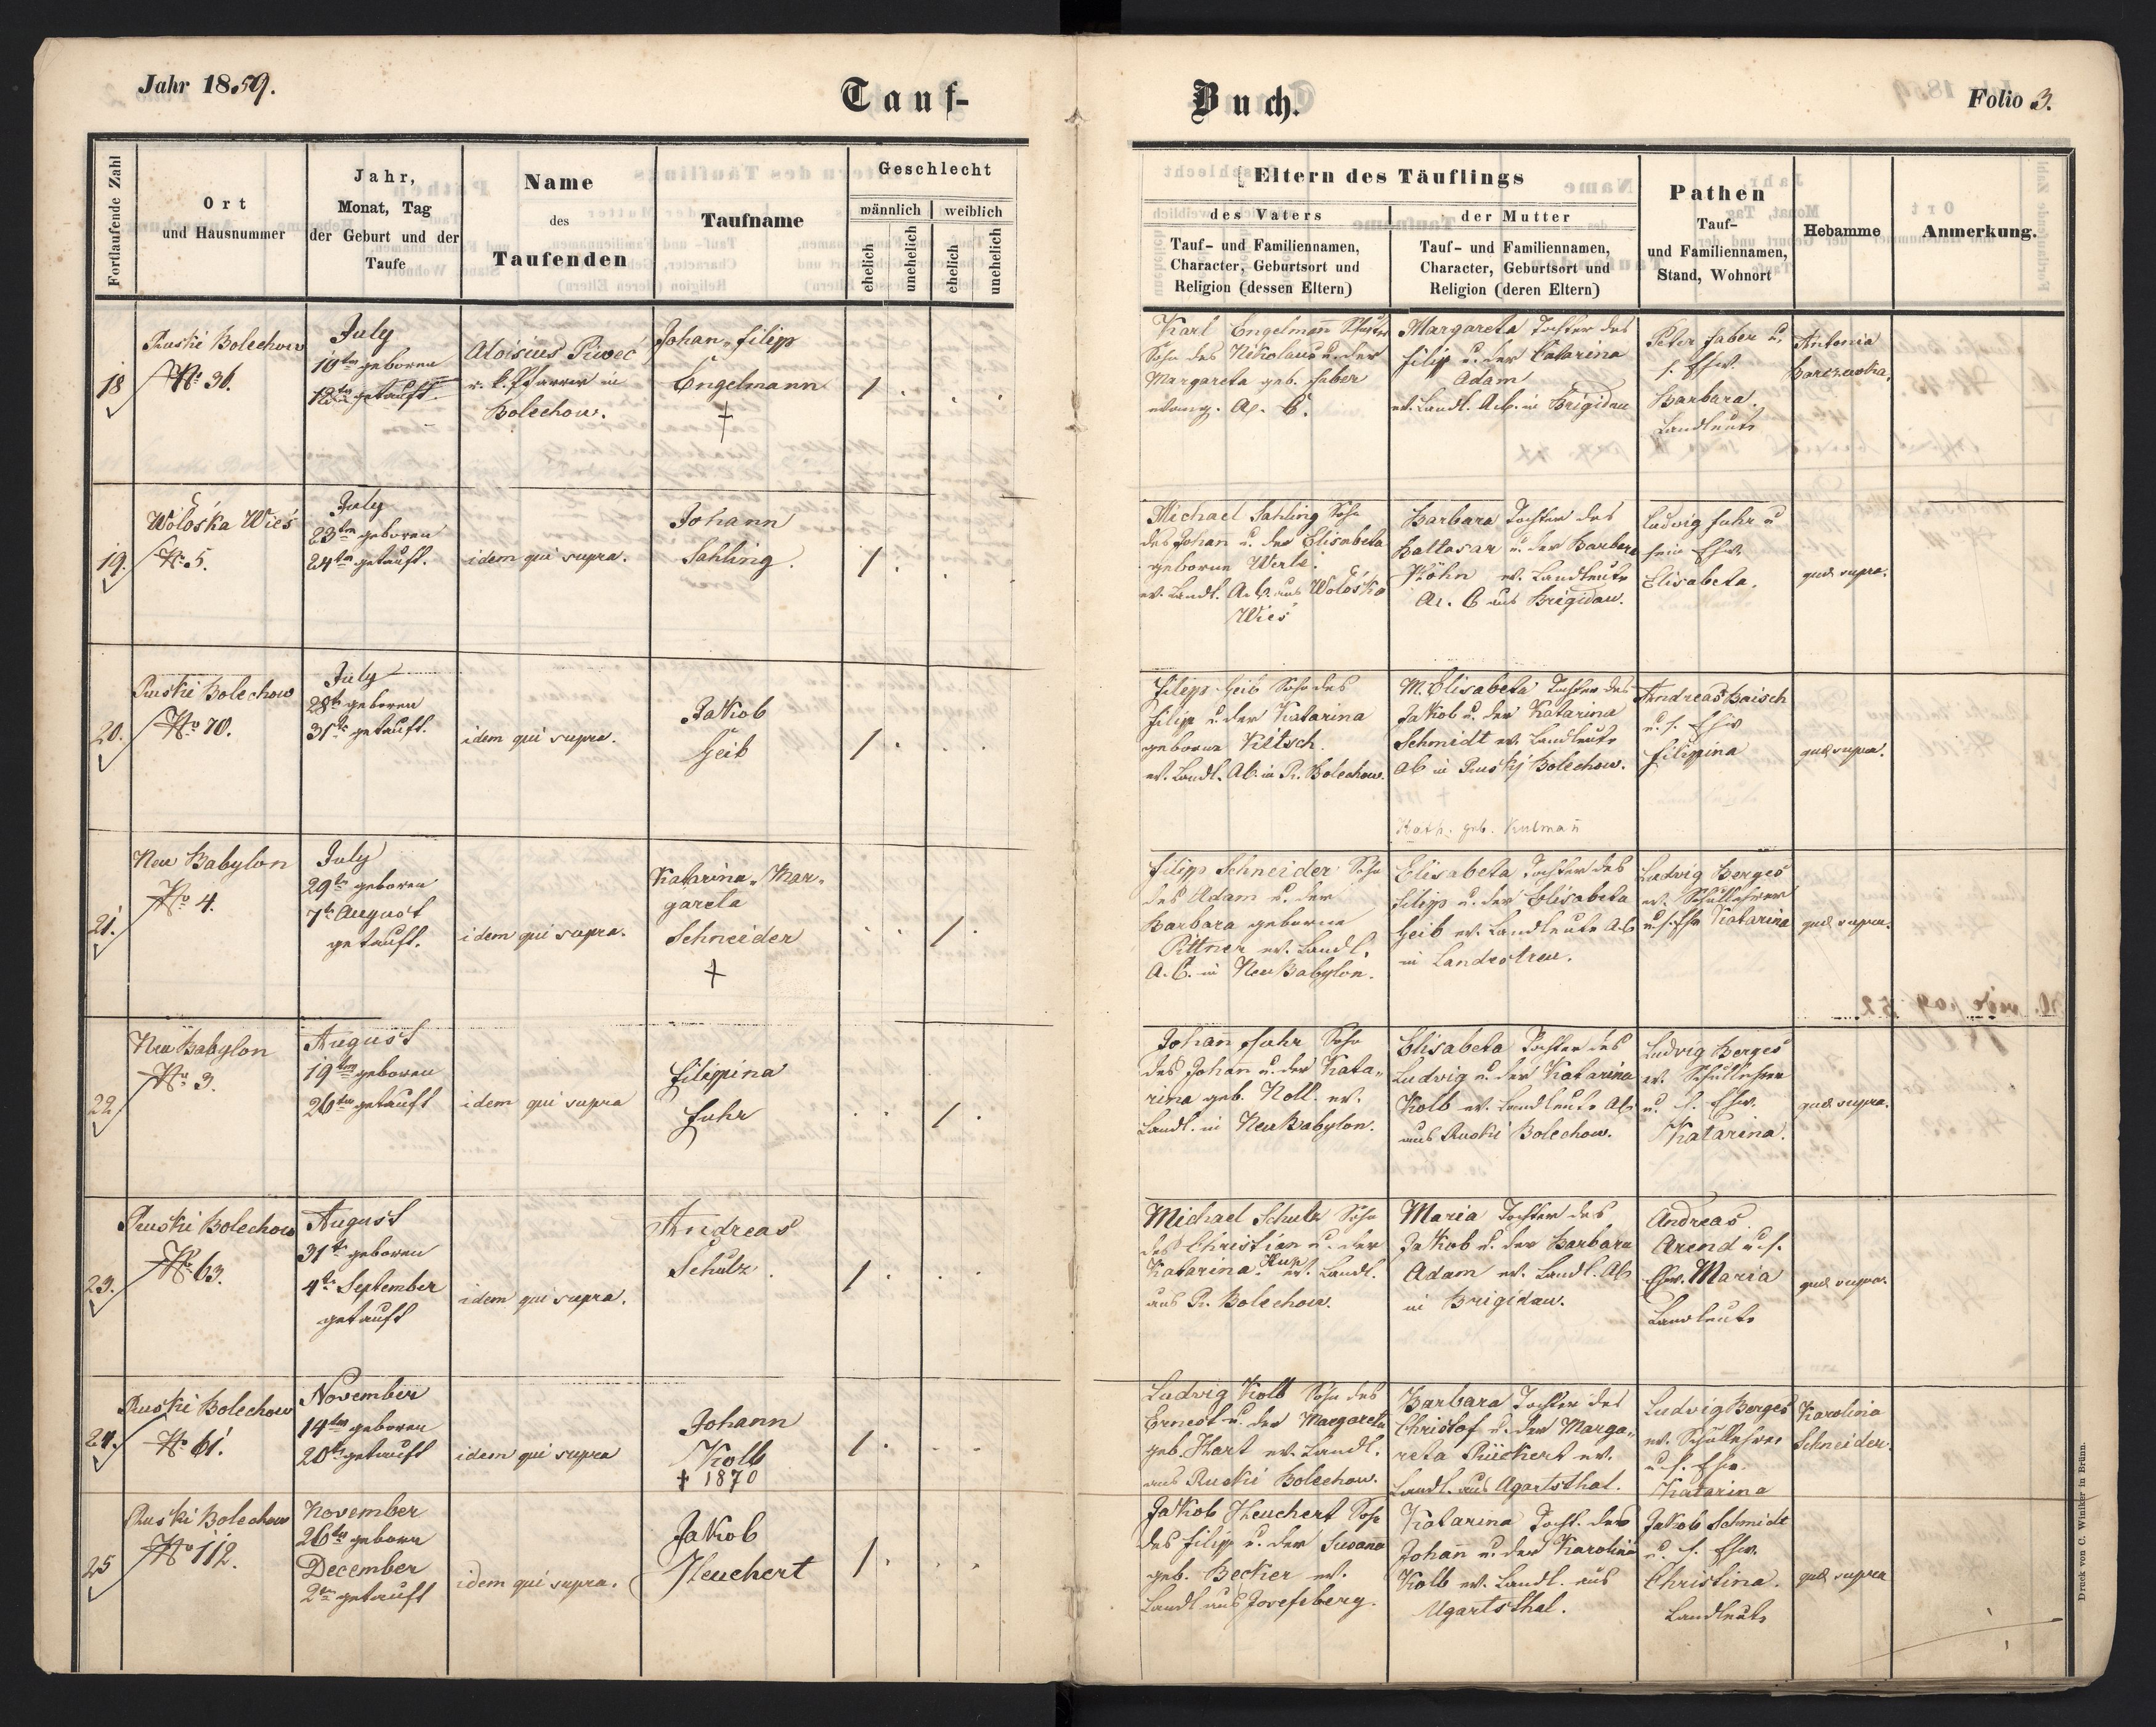 Jahr 1859.
Tauf-
Buch.
Folio 3.
Fortlaufende Zahl
Ort
und Hausnummer
Jahr,
Monat, Tag
der Geburt und der
Taufe
Name
des
Taufenden
Taufname
Geschlecht
männlich
weiblich
ehelich
unehelich
ehelich
unehelich
Eltern des Täuflings
des Vaters
Tauf- und Familiennamen,
Character, Geburtsort und
Religion (dessen Eltern)
der Mutter
Tauf- und Familiennamen,
Character, Geburtsort und
Religion (deren Eltern)
Pathen
Tauf-
und Familiennamen,
Stand, Wohnort
Hebamme
Anmerkung.
18
Ruski Bolechow
No 36.
July
geboren
getauft.
Aloisius Piwec
r. k. Pfarrer in
Bolechow.
Johan-Filipp
Engelmann
†
1
Karl Engelmann
Sohn des Nikolaus u. der
Margareta geb. Faber
evang. A. C.
Margareta Tochter des
Filip u. der Catarina
Adam
ev. Landl. A.C. in Brigidau
Peter Faber u.
s. Ehw.
Barbara.
Landleute
Antonia
19.
Wołoska Wieś
No 5.
July
23ten geboren
24ten getauft.
idem qui supra.
Johann
Sahling.
1
Michael Sahling Sohn
des Johan u. der Elisabeta
geborne
ev. Landl. A.C. aus Wołoska
Wieś
Barbara Tochter des
Baltasar u. der Barbara
Köhn ev. Landleute
A. C aus Brigidau.
Ludwig Fuhr u
sein Ehw.
Elisabeta.
quae supra.
20.
Ruski Bolechow
No 70.
July
28t geboren
31t getauft.
idem qui supra.
Jakob
Geib
1
Filipp Geib Sohn des
Filip u. der Katarina
geborne Kiltsch.
ev. Landl. AC. in R. Bolechow.
M. Elisabeta Tochter des
Jakob u. der Katarina
Schmidt ev. Landleute
AC in Ruskij Bolechow.
Andreas Baisch
u. s. Ehw
Filippina
quae supra.
Kath. geb. Kulman̄
21.
Neu Babylon
No 4.
July
29t geboren
7t August
getauft.
idem qui supra.
Katarina-Mar-
gareta
Schneider
†
1
Filipp Schneider Sohn
des Adam u. der
Barbara geborne
Pittner ev. Landl.
A.C. in Neu Babylon.
Elisabeta Tochter des
Filip u. der Elisabeta
Geib ev. Landleute A.C
in Landestreu.
Ludwig Berges
ev. Schullehrer
u. s. Ehw Katarina
quae supra.
22
Neu Babylon
No 3.
August
19ten geboren
26ten getauft
idem qui supra
Filippina
Fuhr
1
Johan̄ Fuhr Sohn
des Johan̄ u. der Kata-
rina geb. Koll. ev.
Landl. in Neu Babylon.
Elisabeta Tochter des
Ludwig u. der Katarina
Kolb ev. Landleute AC
aus Ruski Bolechow.
Ludwig Berges
ev. Schullehrer
u. s. Ehw.
Katarina.
quae supra.
23.
Ruski Bolechow
No 63.
August
31t geboren
4t September
getauft
idem qui supra.
Andreas
Schulz.
1
Michael Schulz Sohn
des Christian u. der
Katarina ev. Landl.
aus R. Bolechow.
Maria Tochter des
Jakob u. der Barbara
Adam ev. Landl. AC
in Brigidau.
Andreas
Arend u. s.
Ehw. Maria
Landleute
quae supra.
24.
Ruski Bolechow
No 61.
November
14ten geboren
20t getauft
idem qui supra
Johann
Kolb
† 1870
1
Ludwig Kolb Sohn des
Ernest u. der Margareta
geb. Hart ev. Landl.
aus Ruski Bolechow.
Barbara Tochter des
Christof u. der Marga-
reta Rückert ev.
Landl. aus Ugartsthal.
Ludwig Berges
ev. Schullehrer
u. s. Ehw.
Katarina
Karolina
Schneider.
25
Ruski Bolechow
No 112.
November
26ten geboren
December
2ten getauft
idem qui supra.
Jakob
Heuchert
1
Jakob Heuchert Sohn
des Filip u. der Susan̄a
geb. Becker ev.
Landl aus Josefsberg.
Katarina Tocht. des
Johan̄ u. der Karolina
Kolb ev. Landl. aus
Ugartsthal.
Jakob Schmidt
u. s. Ehw.
Christina.
Landleute
quae supra
Druck von C. Winiker in Brünn.